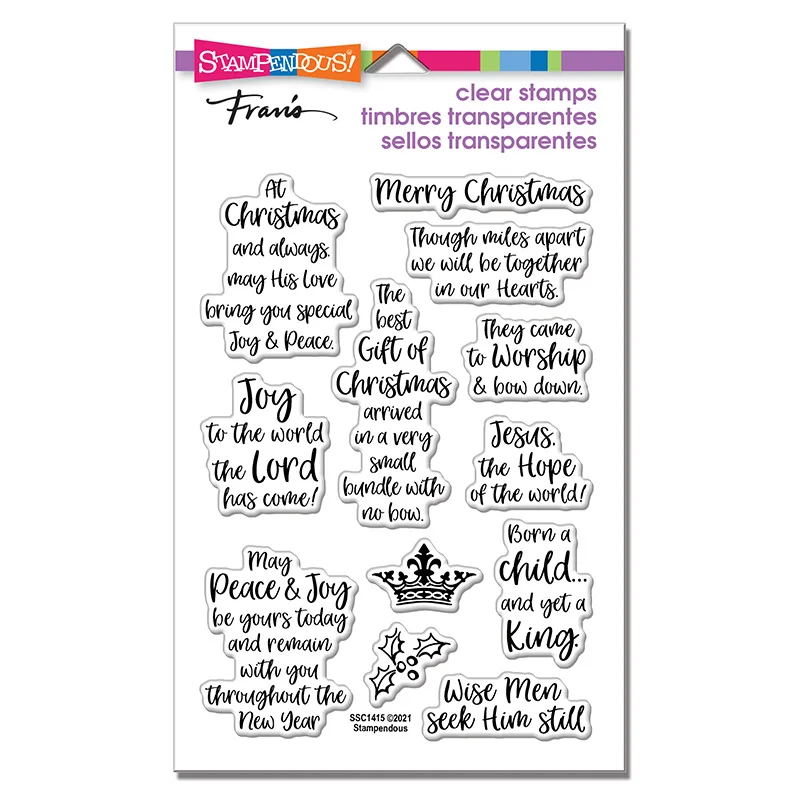 STAMPENDOUS!
Fran's
clear stamps
timbres transparentes
sellos transparentes
At
Christmas
and always,
may His Love
bring you special
Joy & Peace.
Merry Christmas
Though miles apart
we will be together
in our Hearts.
The
best
Gift of
Christmas
arrived
in a very
small
bundle with
no bow.
They came
to Worship
& bow down.
Joy
to the world
the Lord
has come!
Jesus,
the Hope
of the world!
Born a
child...
and yet a
King.
May
Peace & Joy
be yours today
and remain
with you
throughout the
New Year
Wise Men
seek Him still
SSC1415 ©2021
Stampendous